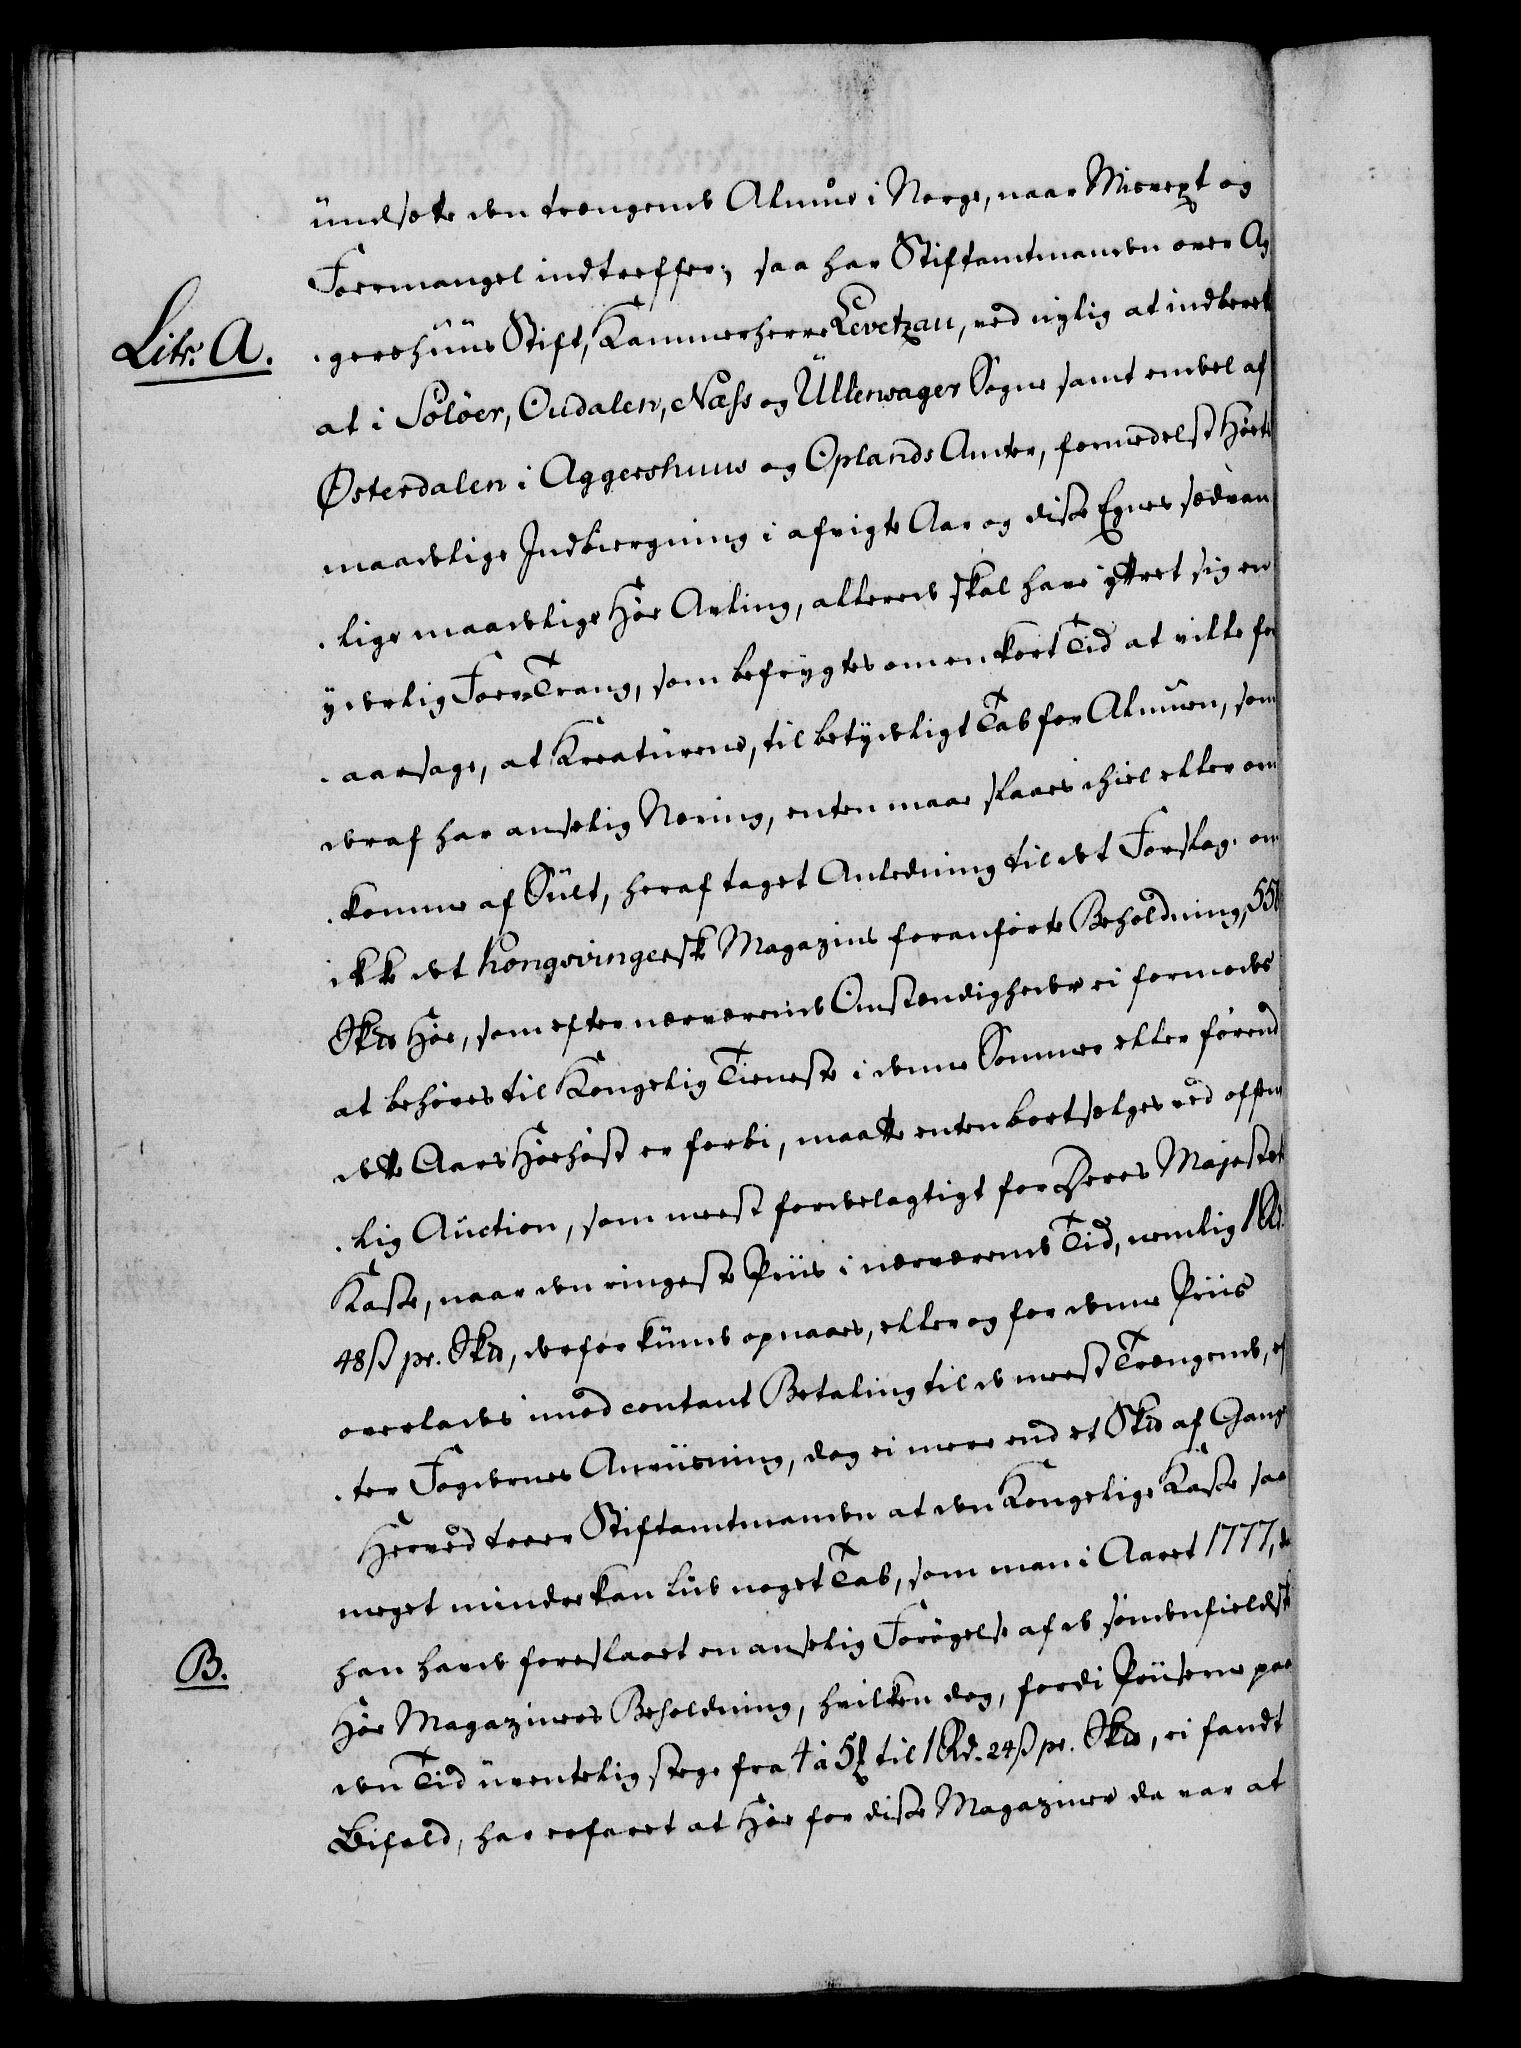 undsætte den trængende Almue i Norge, naar Misvext og
Foermangel indtreffer; saa har Stiftamtmanden over Ag
Litr. A.
-gershuus Stift, Kammerherre Levetzau, ved nylig at indberet
at i Soløer, Oudalen, Næss og Ullensager Sogne samt endeel af
Østerdalen i Aggershuus og Oplands Amter, formedelst Høets
maadelige Indbiergning i afvigte Aar og disse Egnes sædvan
-lige maadelige Høe Avling, allerede skal have yttret sig en
ynkelig Foer-Trang, som befrygtes om en kort Tid at ville for
-aarsage, at Kreaturene, til betydeligt Tab for Almuen, som
deraf har anseelig Næring, enten maae slaaes ihiel eller om
-komme af Sult, heraf taget Anledning til det Forslag: om
ikke det Kongsvingerske Magazins foranførte Beholdning, 550
Sk℔ Høe, som efter nærværende Omstændigheder ei formodes
at behøves til Kongelig Tieneste i denne Sommer eller førend
dette Aars Høehøst er forbi, maatte enten bortsælges ved offent
-lig Auction, som meest fordelagtigt for Deres Majestæts
Kasse, naar den ringeste Priis i nærværende Tid, nemlig 1 Rd.
48 ß pr. Sk℔, derfor kunde opnaaes, eller og for denne Priis
overlades imod contant Betaling til de meest Trængende, ef
-ter Fogdernes Anviisning, dog ei mere end et Sk℔ af Gang
Herved troer Stiftamtmanden at den Kongelige Kasse saa
meget mindre kan lide noget Tab, som man i Aaret 1777, da
B.
han havde foreslaaet en anseelig Forøgelse af de søndenfieldske
Høe Magaziners Beholdning, hvilken dog, fordi Priiserne paa
den Tid uventelig stege fra 4 à 5 ℔ til 1 Rd. 24 ß pr. Sk℔, ei fandt
Bifald, har erfaret at Høe for disse Magaziner da var at